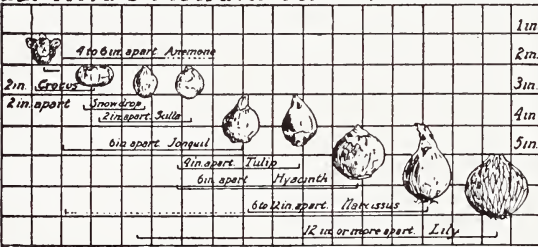 1in.
4 to 6 in. apart Anemone
2in.
2in. Crocus
3in.
2in. apart
Snowdrop
2in. apart Scilla
4in
6in apart Jonquil
5in.
4in. apart Tulip
6in. apart Hyacinth
6 to 12 in. apart Narcissus
12 in or more apart. Lily